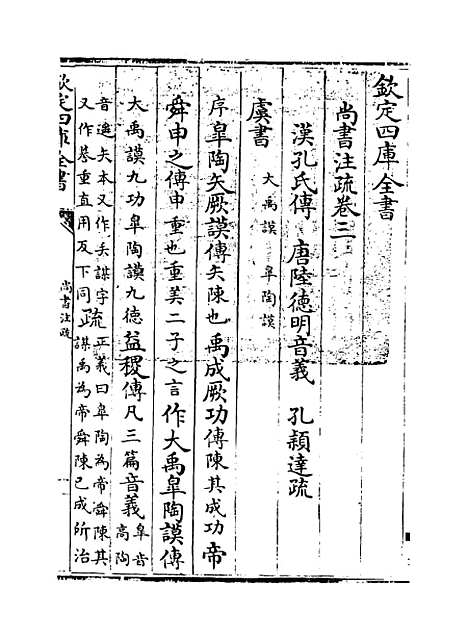 欽定四庫全書
尚書注疏卷三
漢孔氏傳　唐陸德明音義　孔穎達疏
虞書
大禹謨　皋陶謨
序皋陶矢厥謨傳矢陳也禹成厥功傳陳其成功帝
舜申之傳申重也重美二子之言作大禹皋陶謨傳
大禹謨九功皋陶謨九德益稷傳凡三篇音義皋音高陶
音遥矢本又作𠂕謀字又作㥽重直用反下同疏正義曰皋陶為帝舜陳其謀禹為帝舜陳已成所治
欽定四庫全書
尚書注疏